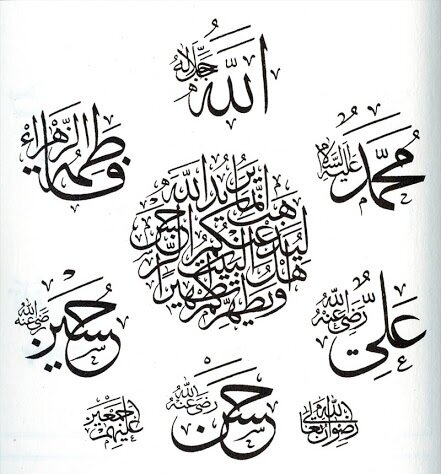 الله جل جلاله
محمد عليه السلام
فاطمة الزهراء
انما يريد الله ليذهب عنكم الرجس اهل البيت ويطهركم تطهيرا
علي رضي الله عنه
حسين رضي الله عنه
حسن رضي الله عنه
رضوان الله تعالى
عليهم اجمعين